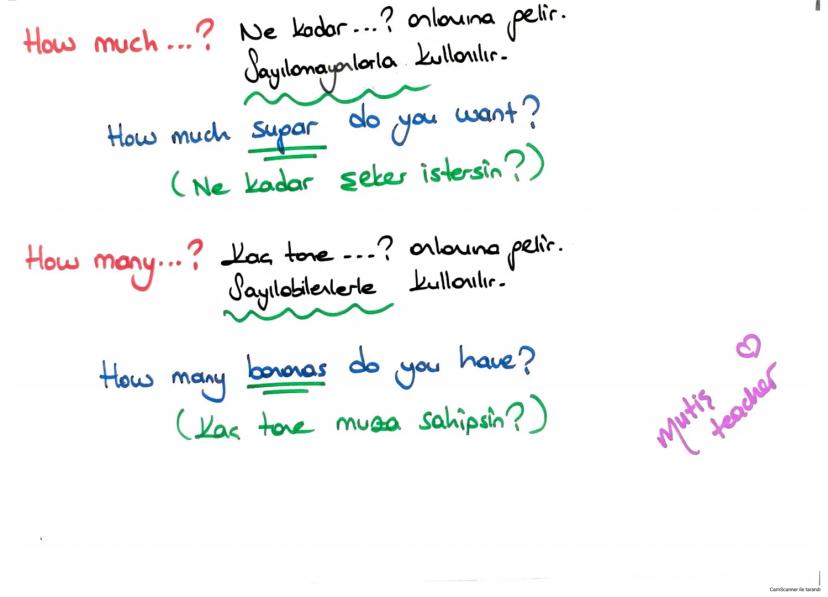 How much...? Ne kadar...? anlamına gelir.
Sayılamayanlarla kullanılır.
How much sugar do you want?
(Ne kadar şeker istersin?)
How many...? Kaç tane ...? anlamına gelir.
Sayılabilenlerle kullanılır.
How many bananas do you have?
(Kaç tane muza sahipsin?)
Mutiş
teacher
CamScanner ile tarandı